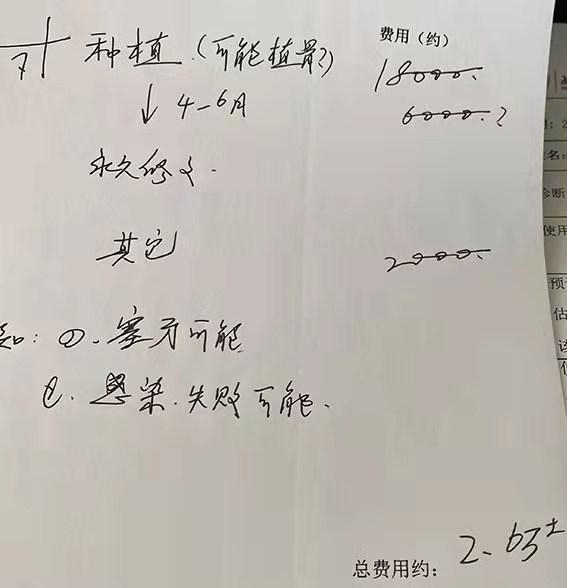 费用（约）
7 种植.（可能植骨?） 18000.
↓ 4-6月 6000.?
永久修复.
其它 2000.
知: ①. 塞牙可能
②. 感染.失败可能.
总费用约: 2.6万±
诊断
使用